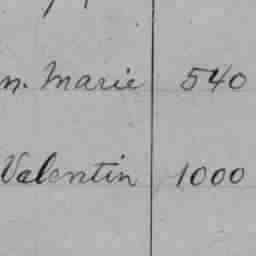 n. Marie 540
Valentin 1000